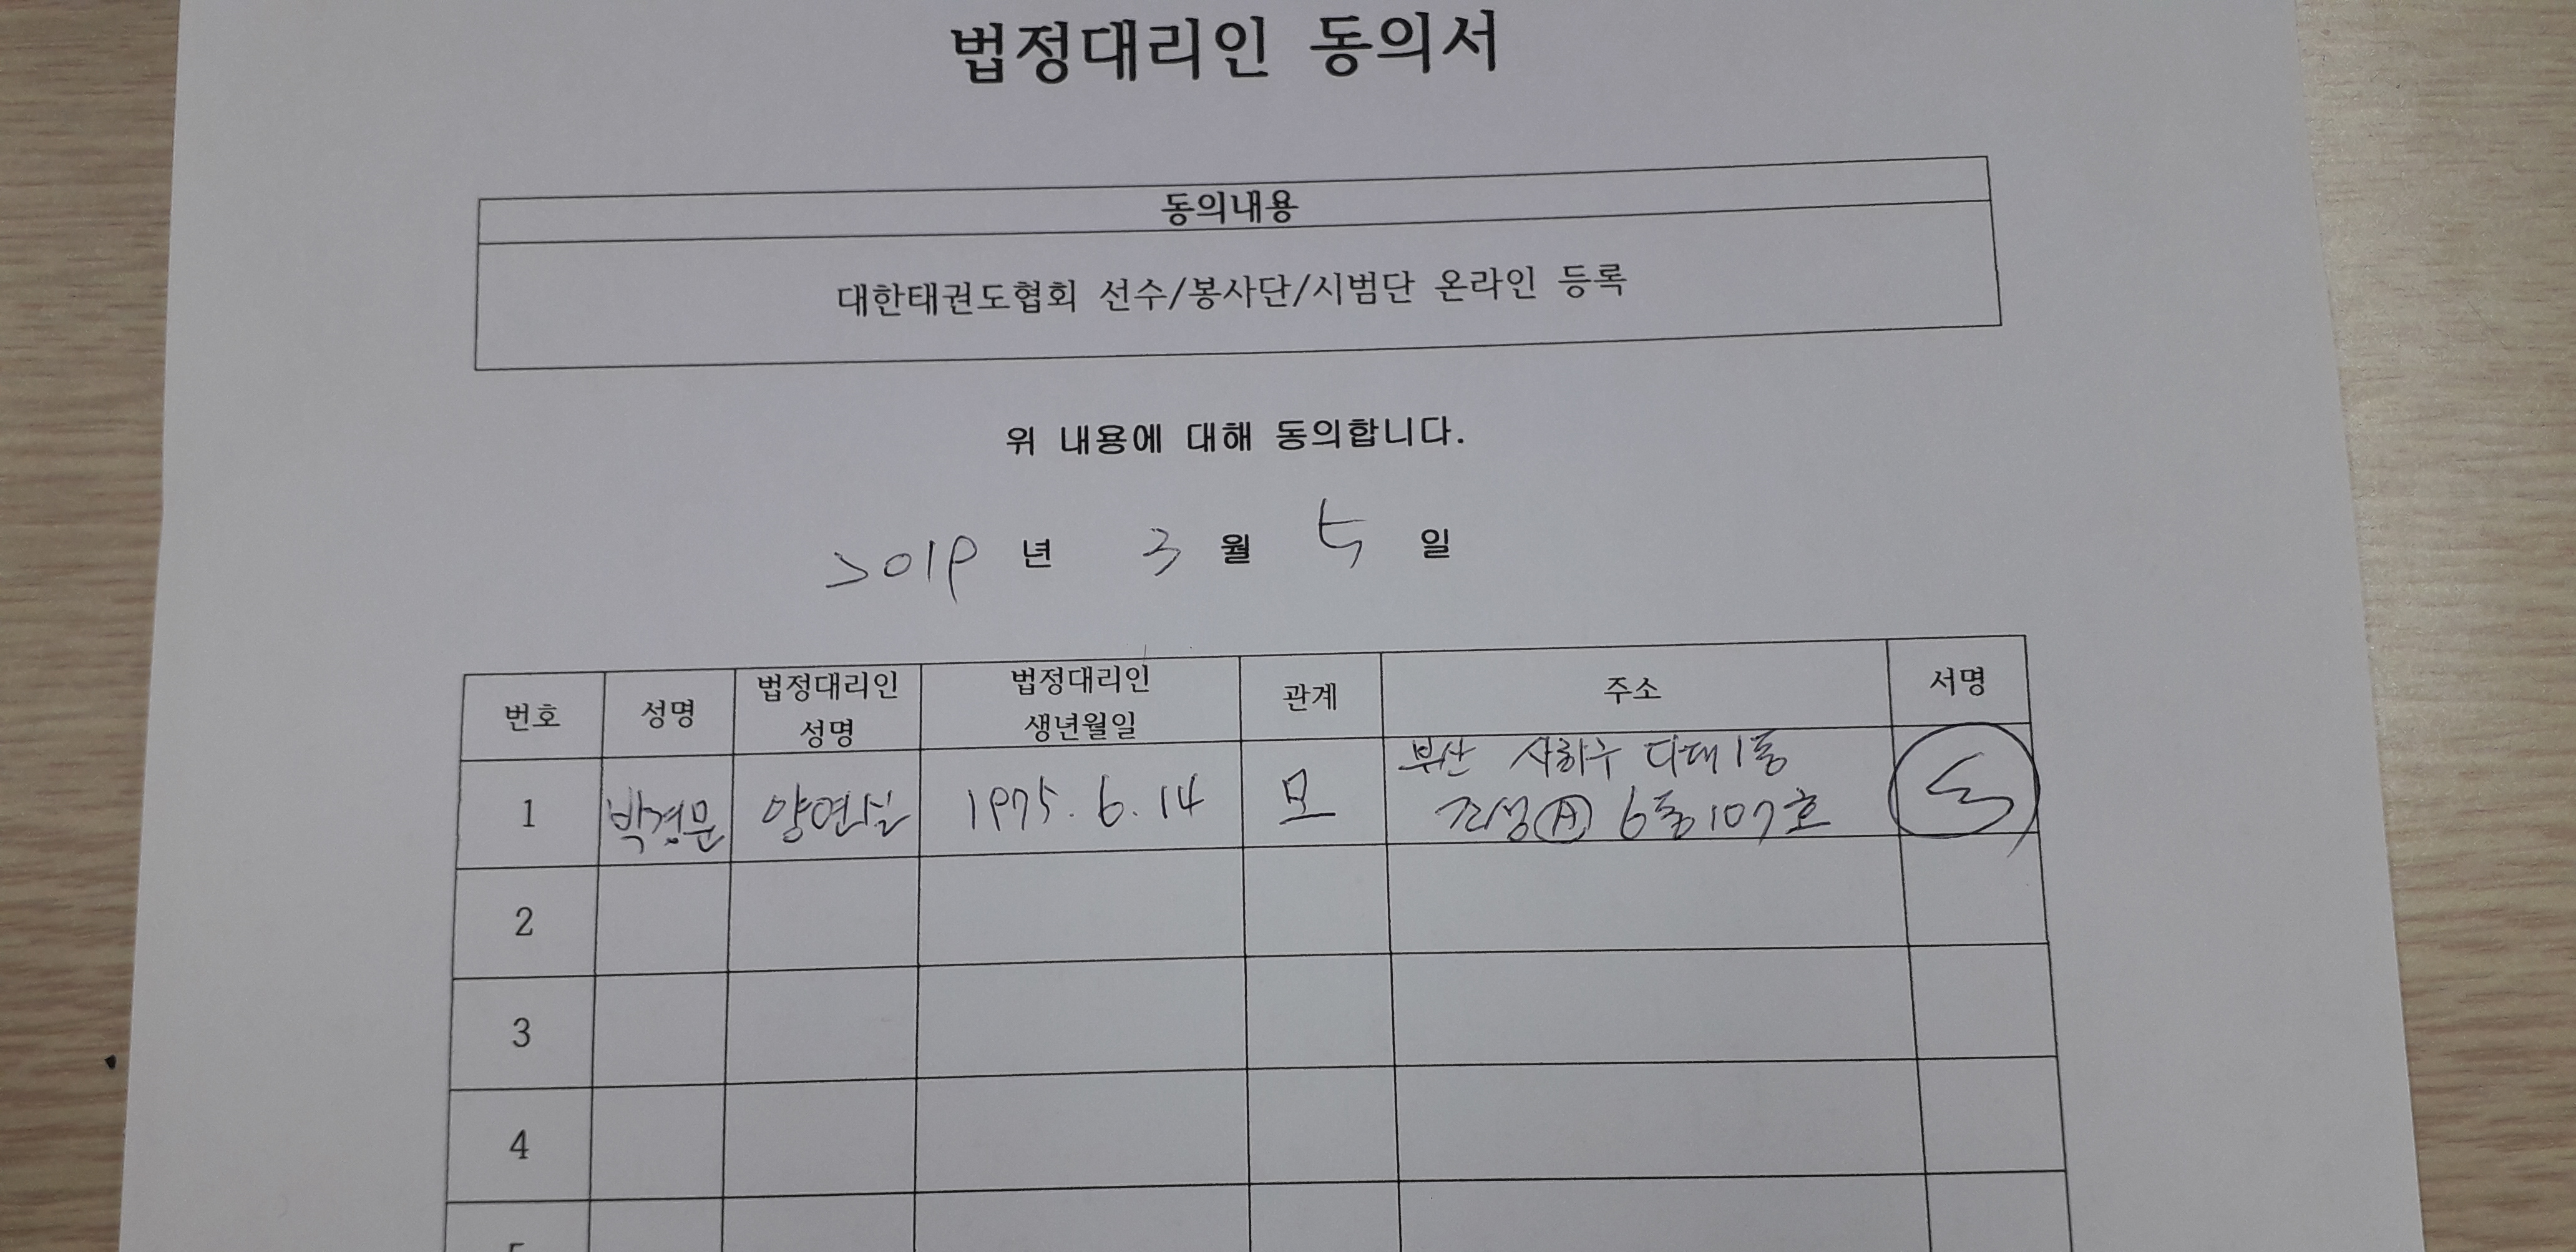 법정대리인 동의서
동의내용
대한태권도협회 선수/봉사단/시범단 온라인 등록
위 내용에 대해 동의합니다.
2019 년 3 월 5 일
번호 성명 법정대리인 성명 법정대리인 생년월일 관계 주소 서명
1 박경문 양연실 1975. 6. 14 모 부산 사하구 다대1동
6동 107호
2
3
4